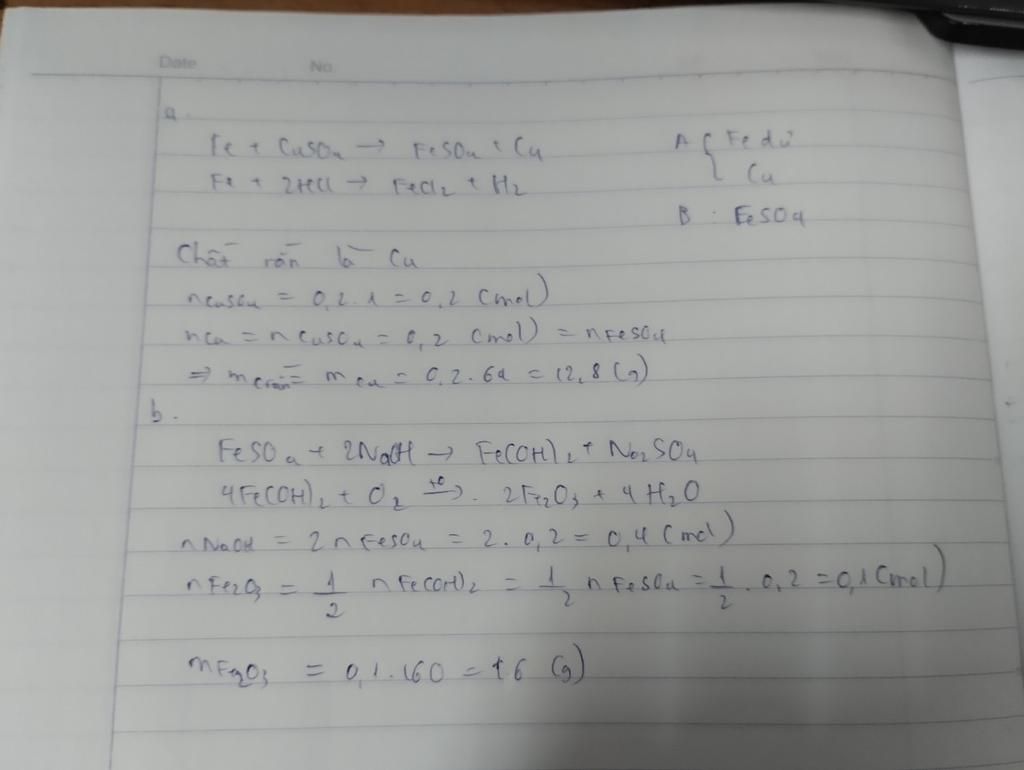 Date No
a.
Fe + CuSO4 → FeSO4 + Cu A { Fe dư
Fe + 2HCl → FeCl2 + H2 Cu
B : FeSO4
Chất rắn là Cu
nCuSO4 = 0,2.1 = 0,2 (mol)
nCu = nCuSO4 = 0,2 (mol) = nFeSO4
⇒ mCrắn = mCu = 0,2.64 = 12,8 (g)
b.
FeSO4 + 2NaOH → Fe(OH)2 + Na2SO4
4Fe(OH)2 + O2 →(t°) 2Fe2O3 + 4H2O
nNaOH = 2nFeSO4 = 2.0,2 = 0,4 (mol)
nFe2O3 = 1/2 nFe(OH)2 = 1/2 nFeSO4 = 1/2 . 0,2 = 0,1 (mol)
mFe2O3 = 0,1.160 = 16 (g)